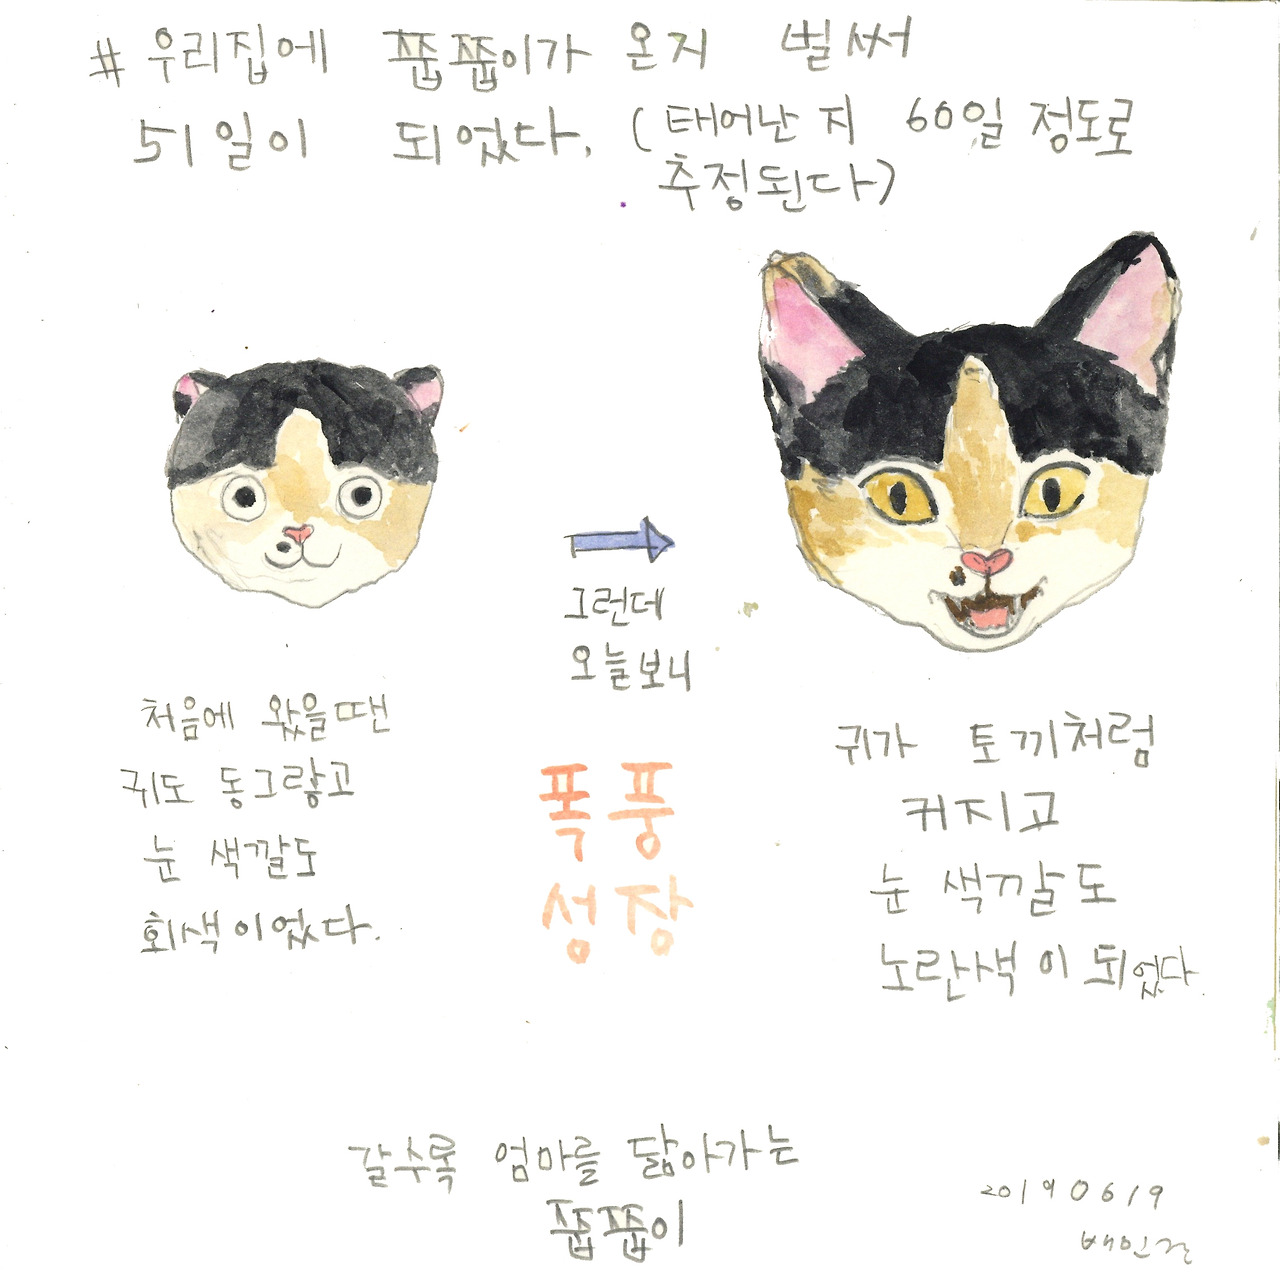 # 우리집에 쭙쭙이가 온지 벌써
51일이 되었다. (태어난 지 60일 정도로
추정된다)
그런데
오늘보니
처음에 왔을땐
귀도 동그랗고
눈 색깔도
회색이었다.
폭풍
성장
귀가 토끼처럼
커지고
눈 색깔도
노란색이 되었다.
갈수록 엄마를 닮아가는
쭙쭙이
20190619